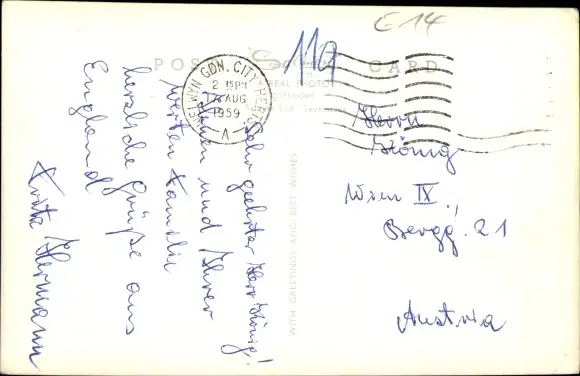 C 14
117
POST CARD
REAL PHOTO
WELWYN GDN. CITY HERTS
2 15PM
17 AUG
1959
A
WITH GREETINGS AND BEST WISHES
Sehr geehrter Herr König!
Ihnen und Ihrer
werten Familie
herzliche Grüße aus
England
Hermann
Herrn
König
Wien IX.
Bergg. 21
Austria